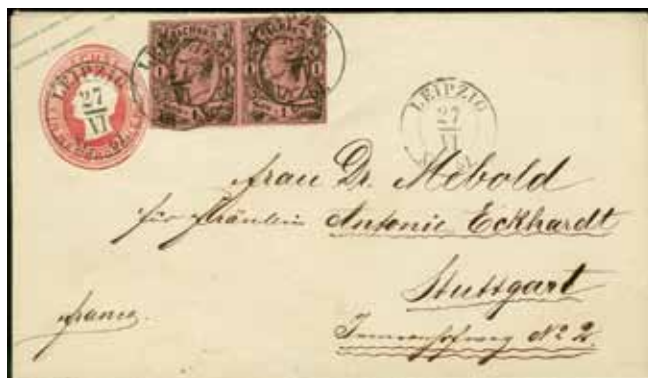 LEIPZIG
27
VI
LEIPZIG
27
VI
Frau Dr. Mebold
für Fräulein Antonie Eckhardt
Stuttgart
franco.
No 2.